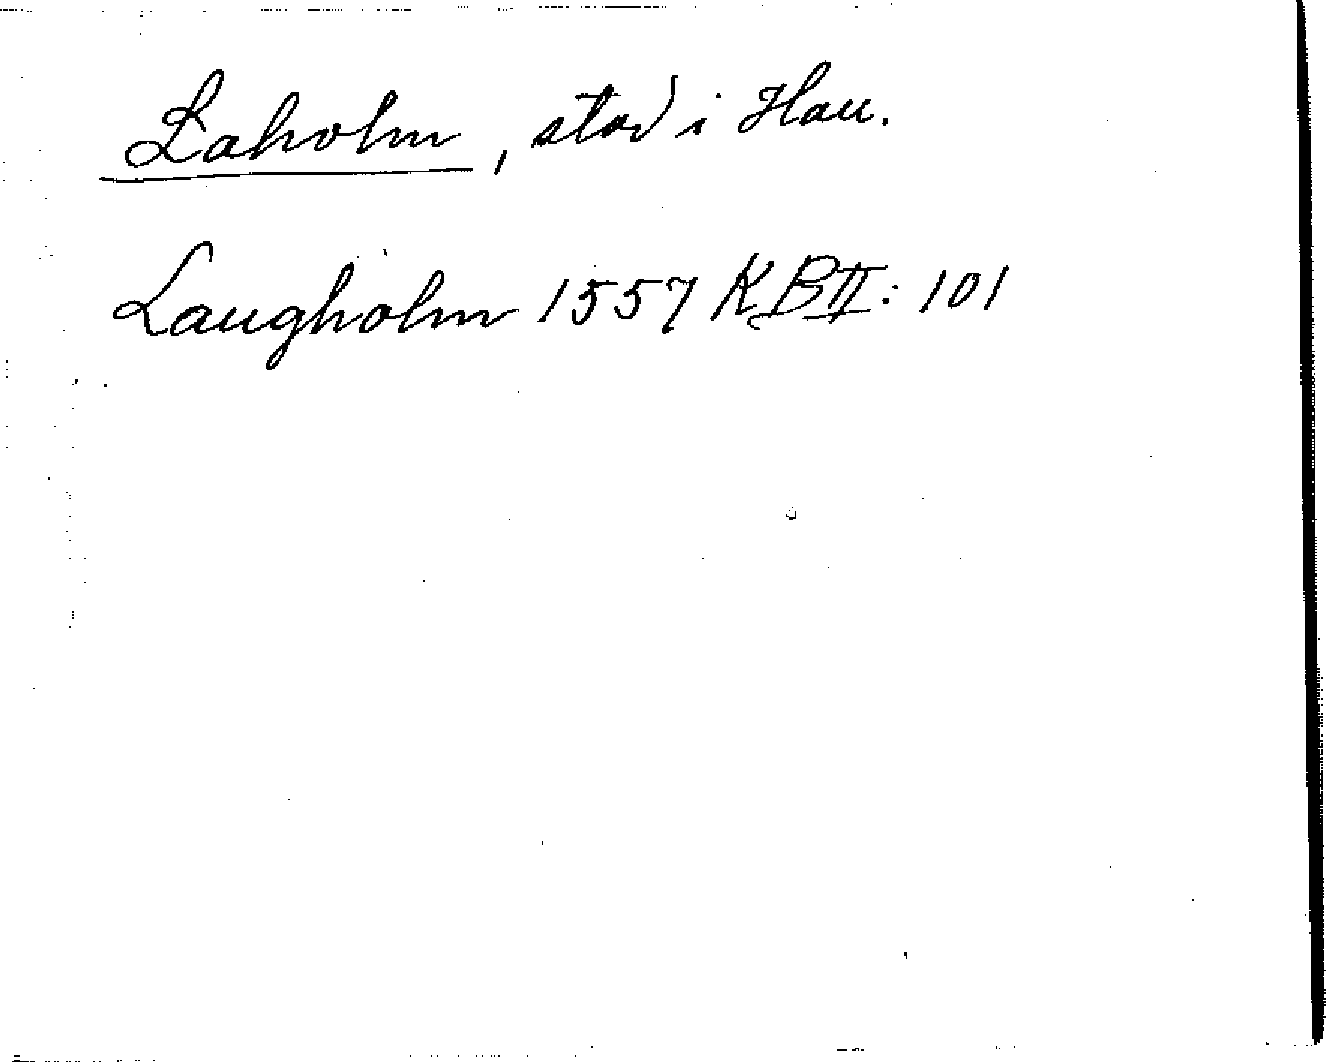 Laholm, stad i Hall.
Laugholm 1557 KB II: 101